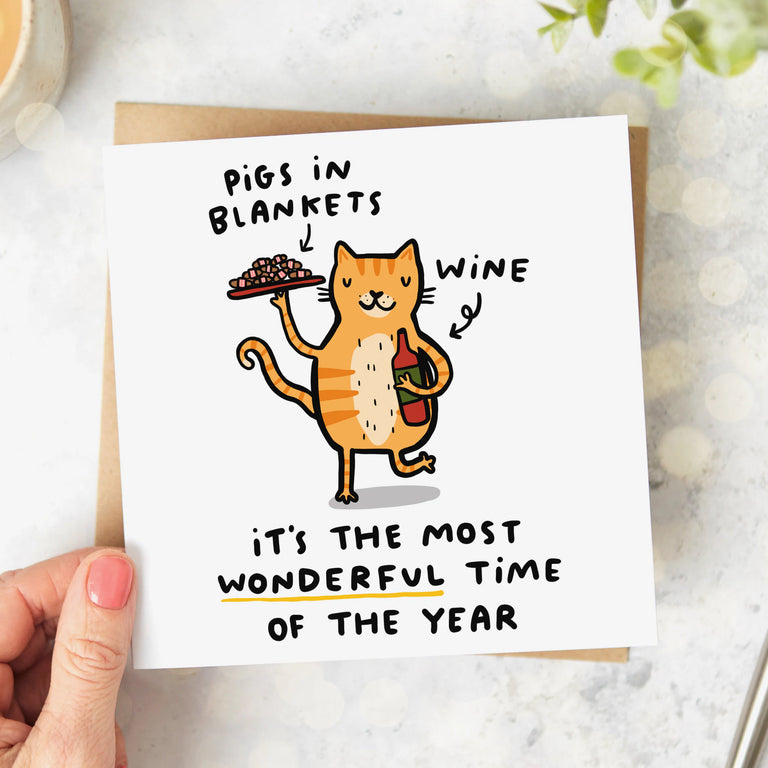 PiGS iN
BLANKETS
WiNE
iT'S THE MOST
WONDERFUL TiME
OF THE YEAR